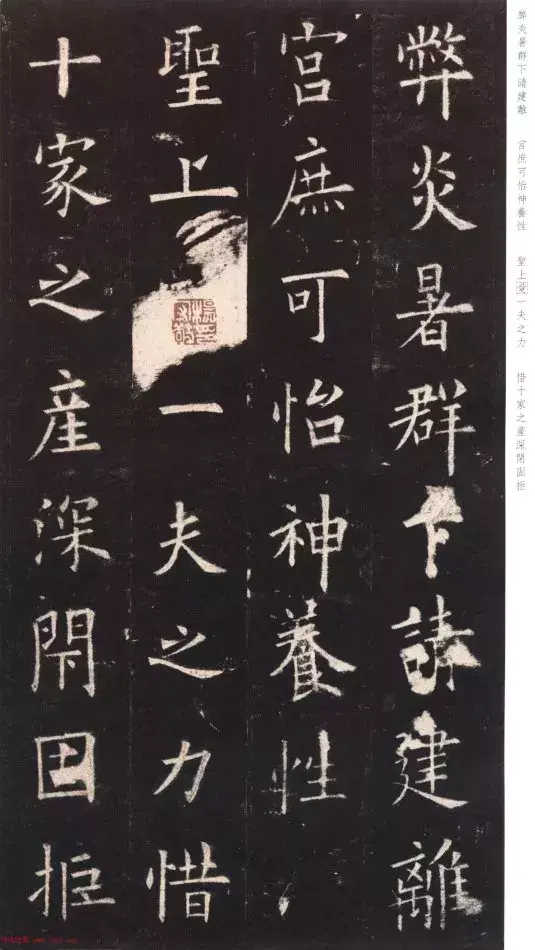 弊炎暑群下請建離　宮庶可怡神養性　聖上愛一夫之力　惜十家之產深閇固拒
弊炎暑群下請建離
宮庶可怡神養性
聖上一夫之力惜
十家之產深閇固拒